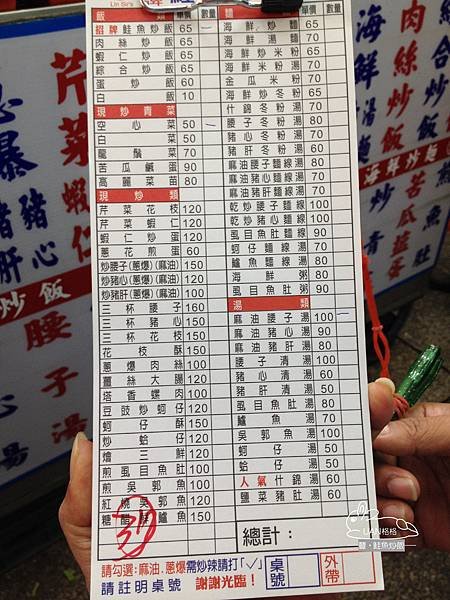 Un Sir's
飯 類 單價 數量
招牌鮭魚炒飯 65
肉絲炒飯 65
蝦仁炒飯 65
綜合炒飯 65
蛋炒飯 60
白飯 10
現炒青菜
空心菜 50
白菜 50
龍鬚菜 70
苦瓜鹹蛋 90
高麗菜苗 80
現炒類
芹菜花枝 120
芹菜蝦仁 120
蝦仁炒蛋 120
蔥花煎蛋 60
炒腰子(蔥爆)(麻油) 150
炒豬心(蔥爆)(麻油) 120
炒豬肝(蔥爆)(麻油) 100
三杯腰子 160
三杯豬心 150
三杯花枝 150
花枝酥 150
蔥爆肉絲 100
薑絲大腸 120
塔香螺肉 100
豆豉炒蚵仔 120
蚵仔酥 150
炒蛤仔 120
燴三鮮 120
煎虱目魚肚 100
煎吳郭魚 100
紅燒吳郭魚 120
糖醋鮮鱸魚 150
麵 類 單價 數量
海鮮炒麵 65
海鮮湯麵 70
海鮮炒米粉 65
海鮮米粉湯 70
金瓜米粉 70
海鮮炒冬粉 65
什錦冬粉湯 70
腰子冬粉湯 80
豬心冬粉湯 70
豬肝冬粉湯 60
麻油腰子麵線湯 80
麻油豬心麵線湯 80
麻油豬肝麵線湯 70
乾炒腰子麵線 100
乾炒豬心麵線 100
虱目魚肚麵線 90
蚵仔麵線湯 70
鱸魚麵線湯 80
海鮮粥 80
虱目魚肚粥 90
湯類
麻油腰子湯 100
麻油豬心湯 90
麻油豬肝湯 80
腰子清湯 100
豬心清湯 60
豬肝清湯 50
虱目魚肚湯 80
鱸魚湯 70
吳郭魚湯 100
蚵仔湯 50
蛤仔湯 50
人氣什錦湯 60
鹽菜豬肚湯 60
總計:
請勾選:麻油.蔥爆 需炒辣請打「✓」
請註明桌號 謝謝光臨!
桌號
外帶
芹菜
炒飯
腰子湯
海鮮
肉絲炒飯
LIAN格格
韓•鮭魚炒飯